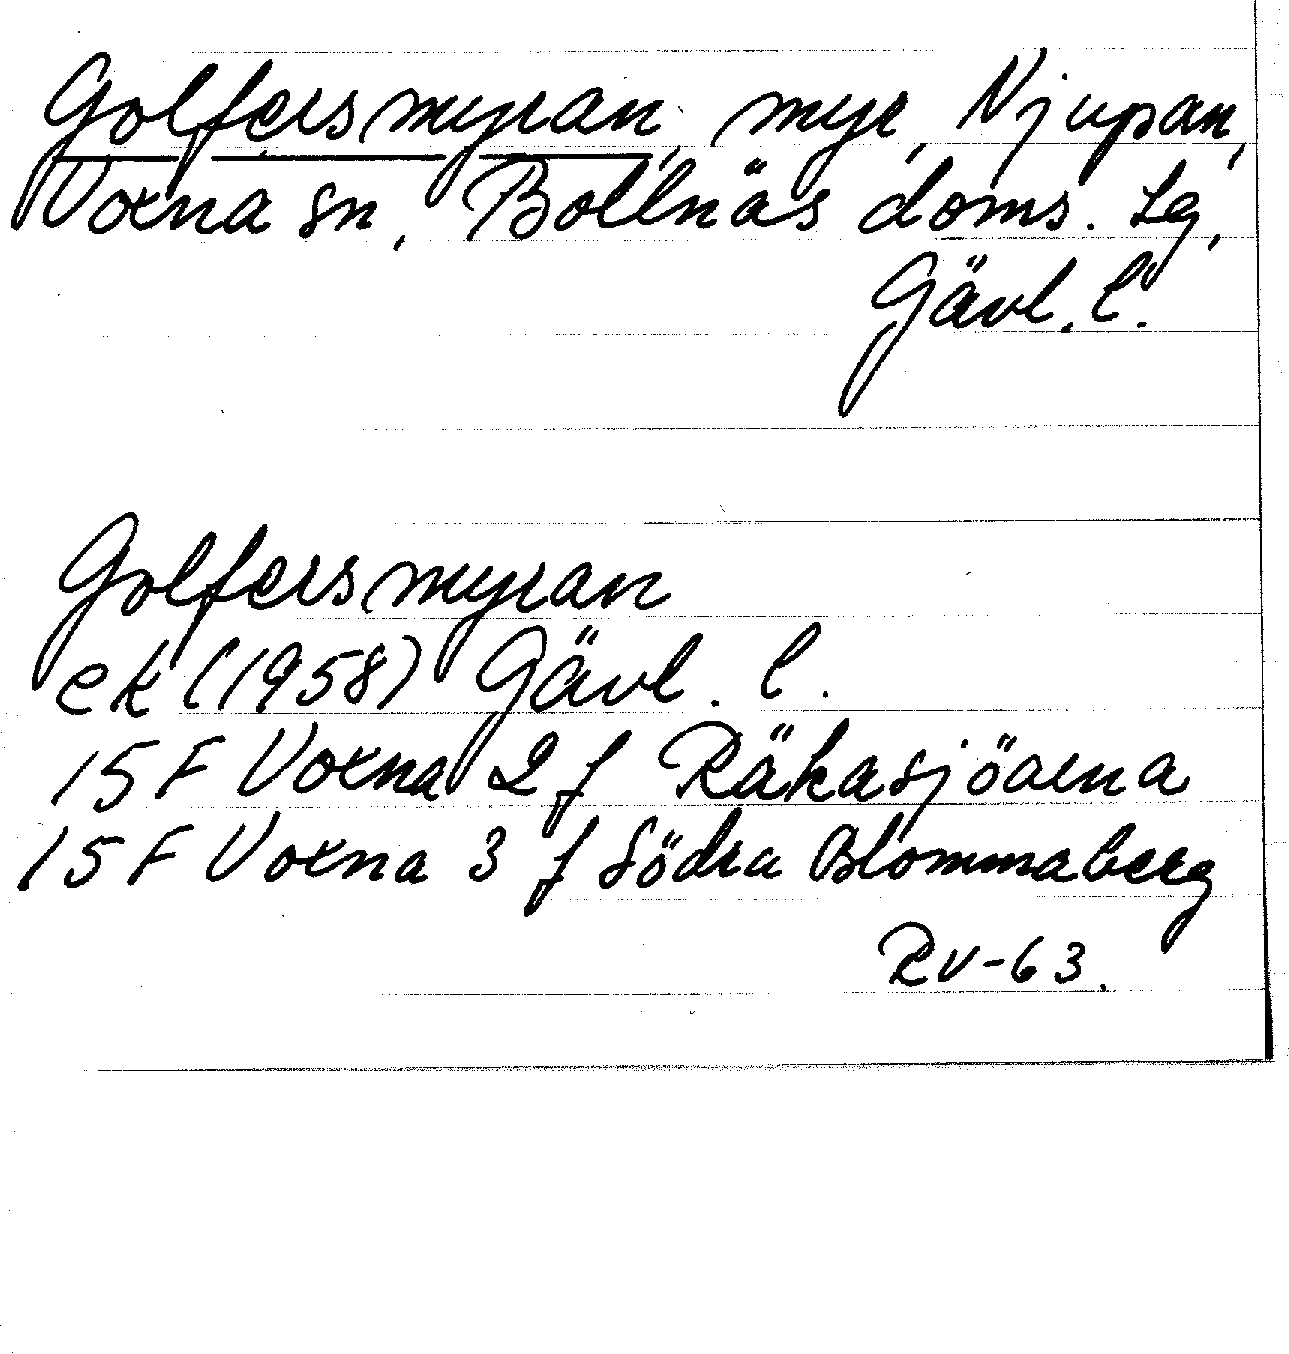 Golfersmyran, myr, Njupan,
Voxna sn, Bollnäs doms. lg,
Gävl. l.
Golfersmyran
ek (1958) Gävl. l.
15 F Voxna 2 f Räkasjöarna
15 F Voxna 3 f Södra Blommaberg
Rv-63.